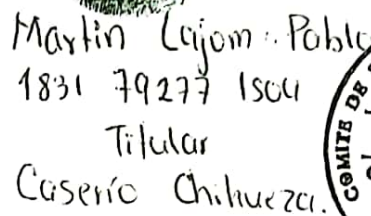 Martin Cajom Pablo
1831 79277 1504
Titular
Caserío Chihueza.
COMITE DE